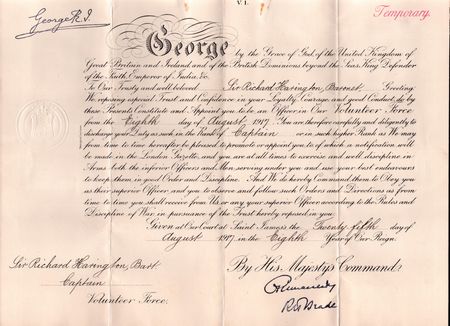 V. I.
George R.I.
Temporary.
George by the Grace of God, of the United Kingdom of
Great Britain and Ireland and of the British Dominions beyond the Seas, King, Defender
of the Faith, Emperor of India, &c.
To Our Trusty and well beloved Sir Richard Harington, Baronet, Greeting:
We reposing especial Trust and Confidence in your Loyalty, Courage, and good Conduct, do by
these Presents Constitute and Appoint you to be an Officer in Our Volunteer Force
from the Eighth day of August, 1917. You are therefore carefully and diligently to
discharge your Duty as such in the Rank of Captain or in such higher Rank as We may
from time to time hereafter be pleased to promote or appoint you to, of which a notification will
be made in the London Gazette, and you are at all times to exercise and well discipline in
Arms both the inferior Officers and Men serving under you and use your best endeavours
to keep them in good Order and Discipline. And We do hereby Command them to Obey you
as their superior Officer and you to observe and follow such Orders and Directions as from
time to time you shall receive from Us, or any your superior Officer according to the Rules and
Discipline of War, in pursuance of the Trust hereby reposed in you.
Given at Our Court at Saint James's the Twenty fifth day of
August 1917 in the Eighth Year of Our Reign.
Sir Richard Harington, Bart.
Captain
Volunteer Force.
By His Majesty's Command.